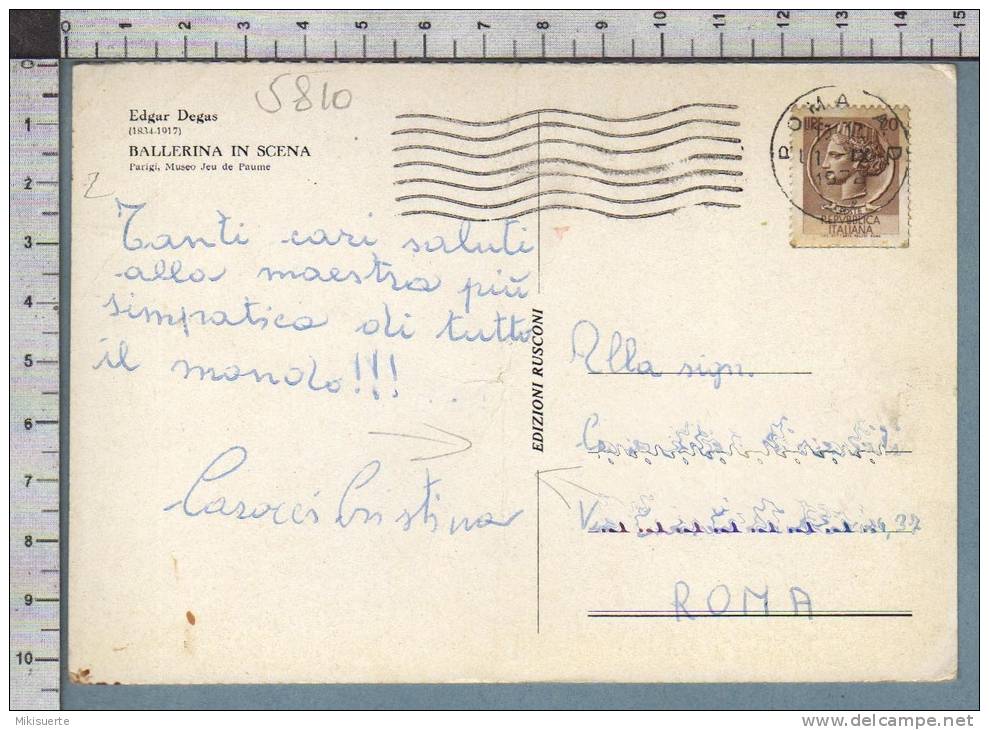 5810
Edgar Degas
(1834-1917)
BALLERINA IN SCENA
Parigi, Museo Jeu de Paume
Tanti cari saluti
alla maestra più
simpatica di tutto
il mondo!!!
Cristina
EDIZIONI RUSCONI
ROMA
LIRE 20
POSTE
REPVBBLICA
ITALIANA
Alla sign.
37
ROMA
0 1 2 3 4 5 6 7 8 9 10 11 12 13 14 15
0
1
2
3
4
5
6
7
8
9
10
Mikisuerte
www.delcampe.net